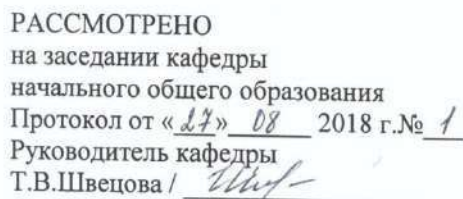 РАССМОТРЕНО
на заседании кафедры
начального общего образования
Протокол от «27» 08 2018 г.№ 1
Руководитель кафедры
Т.В.Швецова /